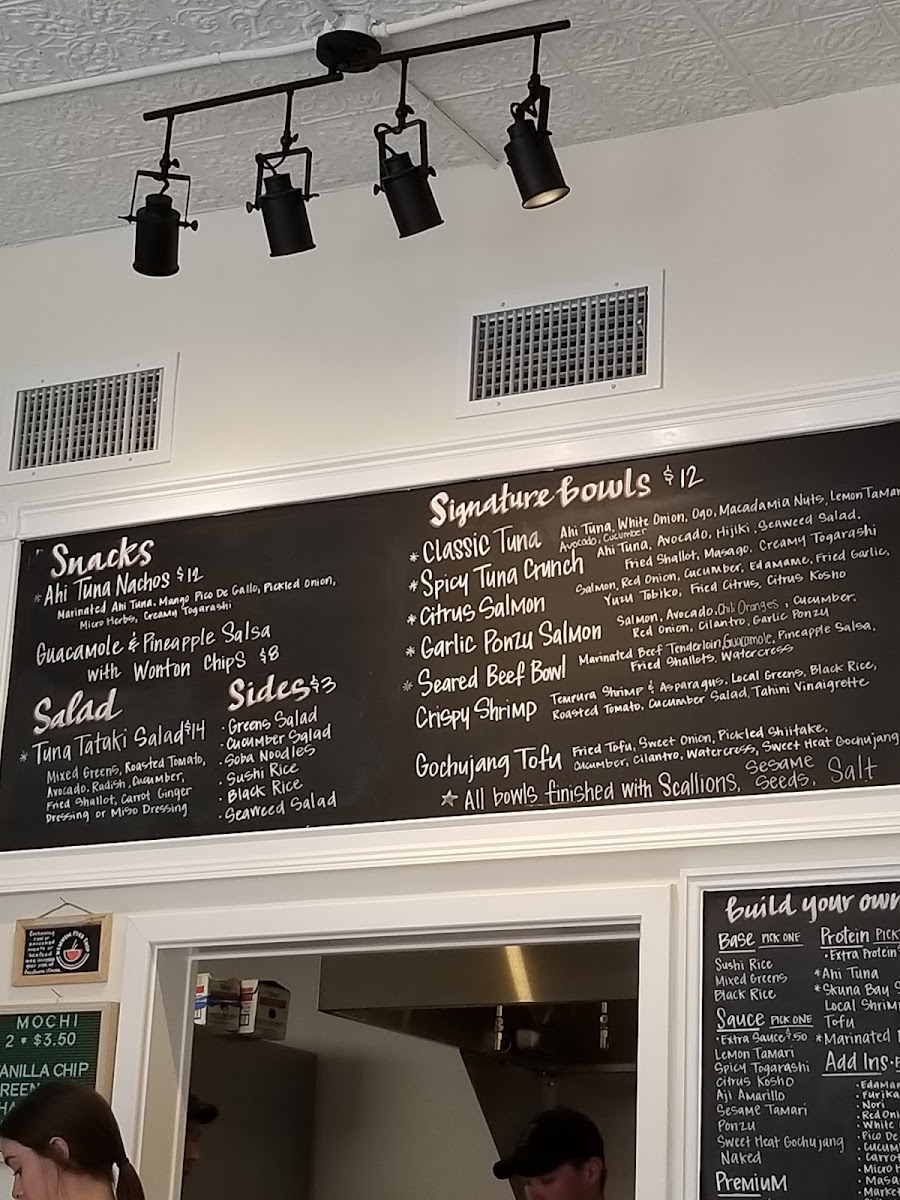 Snacks
*Ahi Tuna Nachos $12
Marinated Ahi Tuna, Mango Pico De Gallo, Pickled Onion,
Micro Herbs, Creamy Togarashi
Guacamole & Pineapple Salsa
with Wonton Chips $8
Salad
*Tuna Tataki Salad $14
Mixed Greens, Roasted Tomato,
Avocado, Radish, Cucumber,
Fried Shallot, Carrot Ginger
Dressing or Miso Dressing
Sides $3
·Greens Salad
·Cucumber Salad
·Soba Noodles
·Sushi Rice
·Black Rice
·Seaweed Salad
Signature Bowls $12
*Classic Tuna Ahi Tuna, White Onion, Ogo, Macadamia Nuts, Lemon Tamari
Avocado, Cucumber
*Spicy Tuna Crunch Ahi Tuna, Avocado, Hijiki, Seaweed Salad,
Fried Shallot, Masago, Creamy Togarashi
*Citrus Salmon Salmon, Red Onion, Cucumber, Edamame, Fried Garlic,
Yuzu Tobiko, Fried Citrus, Citrus Kosho
*Garlic Ponzu Salmon Salmon, Avocado, Chili Oranges, Cucumber,
Red Onion, Cilantro, Garlic Ponzu
*Seared Beef Bowl Marinated Beef Tenderloin, Guacamole, Pineapple Salsa,
Fried Shallots, Watercress
Crispy Shrimp Tempura Shrimp & Asparagus, Local Greens, Black Rice,
Roasted Tomato, Cucumber Salad, Tahini Vinaigrette
Gochujang Tofu Fried Tofu, Sweet Onion, Pickled Shiitake,
Cucumber, Cilantro, Watercress, Sweet Heat Gochujang
★ All bowls finished with Scallions, Sesame Seeds, Salt
MOCHI
2 * $3.50
VANILLA CHIP
Build your own
Base PICK ONE
Sushi Rice
Mixed Greens
Black Rice
Sauce PICK ONE
·Extra Sauce $.50
Lemon Tamari
Spicy Togarashi
Citrus Kosho
Aji Amarillo
Sesame Tamari
Ponzu
Sweet Heat Gochujang
Naked
Premium
Protein PICK
·Extra Protein
*Ahi Tuna
*Skuna Bay S
Local Shrim
Tofu
*Marinated
Add Ins
·Edamam
·Furika
·Nori
·Red Oni
·White
·Pico De
·Cucum
·Carrot
·Micro H
·Masa
·Marke